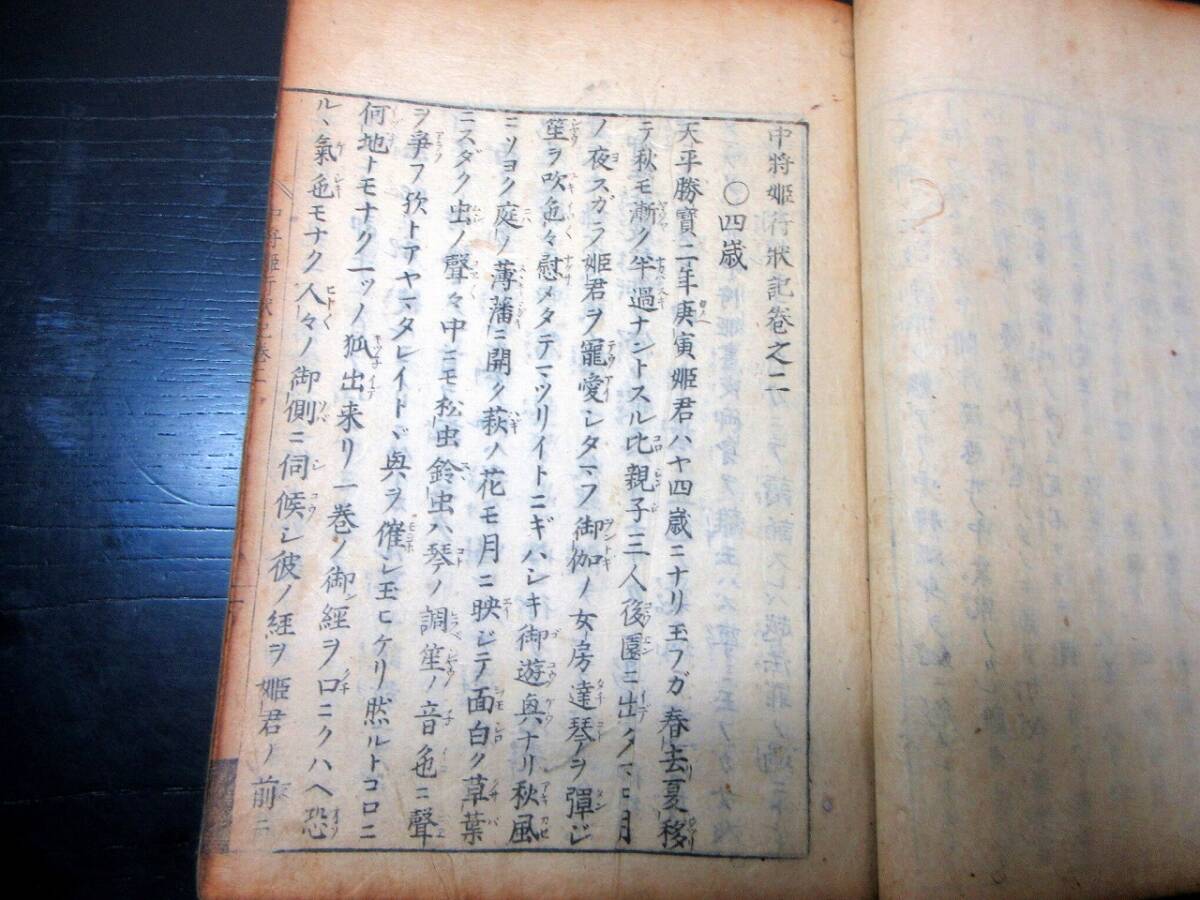 中将姫行狀記巻之二
〇四歳
天平勝寳二年庚寅姫君ハ十四歳ニナリ玉フガ春去夏移
テ秋モ漸ク半過ナントスル比親子三人後園ニ出タマヒ月
ノ夜スガラ姫君ヲ寵愛シタマフ御伽ノ女房達琴ヲ彈ジ
笙ヲ吹色々慰メタテマツリイトニギハシキ御遊興ナリ秋風
ニツヨク庭ノ薄藩ニ開ク萩ノ花モ月ニ映ジテ面白ク草葉
ニスダク虫ノ聲々中ニモ松虫鈴虫ハ琴ノ調笙ノ音色ニ聲
ヲ爭フ欤トアヤマタレイトヾ興ヲ催シ玉ヒケリ然ルトコロニ
何地トモナク一ツノ狐出来リ一巻ノ御經ヲ口ニクハヘ恐
ルヽ氣色モナク人々ノ御側ニ伺候シ彼ノ経ヲ姫君ノ前ニ
中将姫行狀記巻二